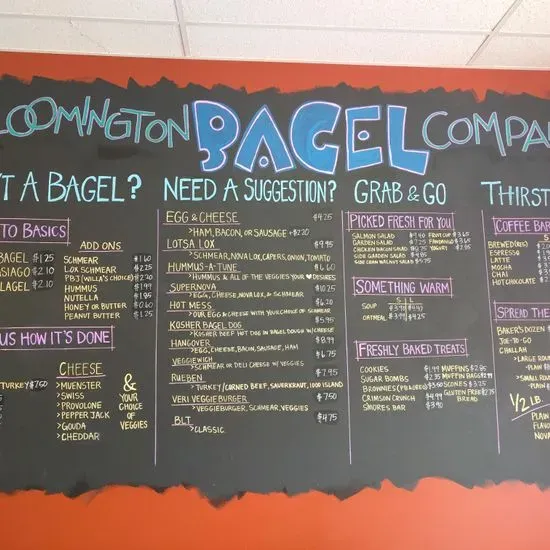 LOOMINGTON BAGEL COMPA
T A BAGEL?
TO BASICS
BAGEL $1.25
ASIAGO $2.10
LAGEL $2.10
ADD ONS
SCHMEAR $1.60
LOX SCHMEAR $2.25
PBJ (WILLA'S CHOICE) $2.20
HUMMUS $1.99
NUTELLA $1.85
HONEY OR BUTTER $0.60
PEANUT BUTTER $1.25
US HOW IT'S DONE
TURKEY $7.50
CHEESE
>MUENSTER
>SWISS
>PROVOLONE
>PEPPER JACK
>GOUDA
>CHEDDAR
&
YOUR
CHOICE
OF
VEGGIES
NEED A SUGGESTION?
EGG & CHEESE $4.25
>HAM, BACON, OR SAUSAGE +$2.20
LOTSA LOX $9.95
>SCHMEAR, NOVA LOX, CAPERS, ONION, TOMATO
HUMMUS-A-TUNE $6.60
>HUMMUS & ALL OF THE VEGGIES YOUR ♥ DESIRES
SUPERNOVA $10.25
>EGG, CHEESE, NOVA LOX, & SCHMEAR
HOT MESS $6.20
>OUR EGG & CHEESE WITH YOUR CHOICE OF SCHMEAR
KOSHER BAGEL DOG $5.95
>KOSHER BEEF HOT DOG IN BAGEL DOUGH W/CHEESE
HANGOVER $8.99
>EGG, CHEESE, BACON, SAUSAGE, HAM
VEGGIEWICH $6.75
>SCHMEAR OR DELI CHEESE W/ VEGGIES
RUEBEN $7.95
>TURKEY/CORNED BEEF, SAUERKRAUT, 1000 ISLAND
VERI VEGGIEBURGER $7.50
>VEGGIEBURGER, SCHMEAR, VEGGIES
BLT $4.75
>CLASSIC
GRAB & GO
PICKED FRESH FOR YOU
SALMON SALAD $9.40 FRUIT CUP $3.65
GARDEN SALAD $7.25
CHICKEN BACON SALAD $8.75 YOGURT $2.95
SIDE GARDEN SALAD $4.95
SOMETHING WARM
S | L
SOUP
OATMEAL $3.99/$4.25
FRESHLY BAKED TREATS
COOKIES $1.99 MUFFINS $2.85
SUGAR BOMBS $2.35 MUFFIN BAGS $2.99
BROWNIES $3.50 SCONES $3.25
CRIMSON CRUNCH $4.99 GLUTEN FREE $2.75
S'MORES BAR $3.90 BREAD
THIRST
COFFEE BAR
BREWED
ESPRESSO
LATTE
MOCHA
CHAI
HOT CHOCOLATE
SPREAD THE
BAKER'S DOZEN
JOE-TO-GO
CHALLAH
>LARGE
>PLAIN
>SMALL
>PLAIN
1/2 LB.
PLAIN
FLAVO
NOVA